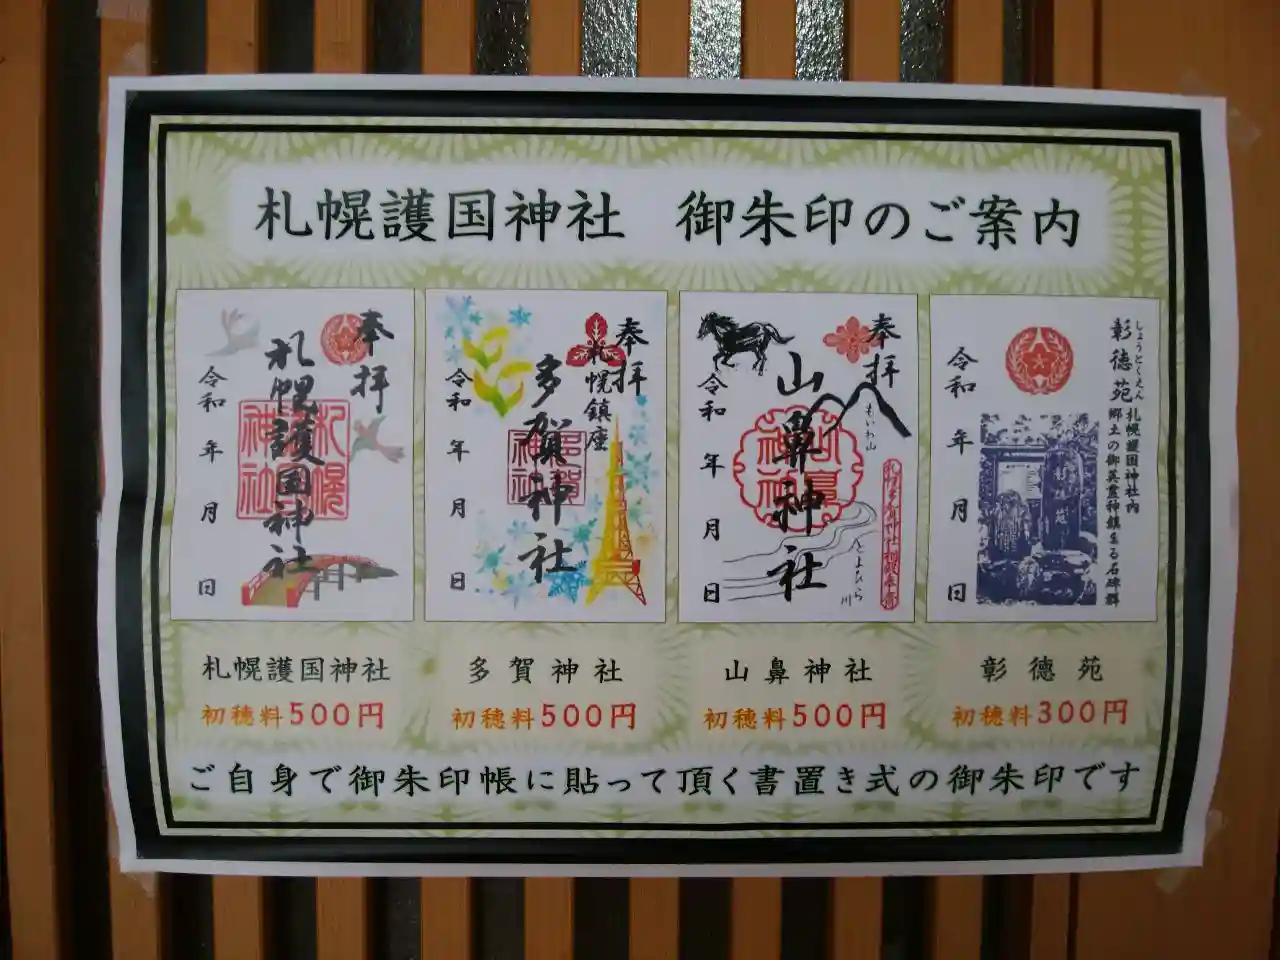 札幌護国神社 御朱印のご案内
奉拝
札幌護国神社
令和 年 月 日
奉拝
札幌鎮座
多賀神社
令和 年 月 日
奉拝
山鼻神社
もいわ山
とよひら川
令和 年 月 日
しょうとくえん
彰徳苑
札幌護国神社内
郷土の御英霊神鎮まる石碑群
令和 年 月 日
札幌護国神社
初穂料500円
多賀神社
初穂料500円
山鼻神社
初穂料500円
彰徳苑
初穂料300円
ご自身で御朱印帳に貼って頂く書置き式の御朱印です